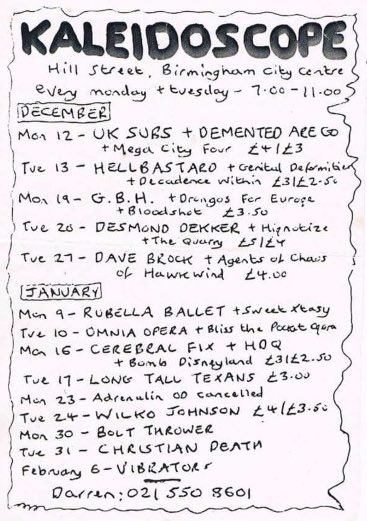 KALEIDOSCOPE
Hill Street, Birmingham City Centre
every monday + tuesday - 7.00 - 11.00
DECEMBER
Mon 12 - UK SUBS + DEMENTED ARE GO
+ Mega City Four £4/£3
Tue 13 - HELLBASTARD + Genital Deformities
+ Decadence Within £3/£2.50
Mon 19 - G.B.H. + Drongos For Europe
+ Bloodshot £3.50
Tue 20 - DESMOND DEKKER + Hignotize
+ The Quarry £5/£4
Tue 27 - DAVE BROCK + Agents of Chaos
of Hawkwind £4.00
JANUARY
Mon 9 - RUBELLA BALLET + Sweet Xtasy
Tue 10 - OMNIA OPERA + Bliss the Pocket Opera
Mon 16 - CEREBRAL FIX + HDQ
+ Bomb Disneyland £3/£2.50
Tue 17 - LONG TALL TEXANS £3.00
Mon 23 - Adrenalin OD cancelled
Tue 24 - WILKO JOHNSON £4/£3.50
Mon 30 - BOLT THROWER
Tue 31 - CHRISTIAN DEATH
February 6 - VIBRATORS
Darren: 021 550 8601